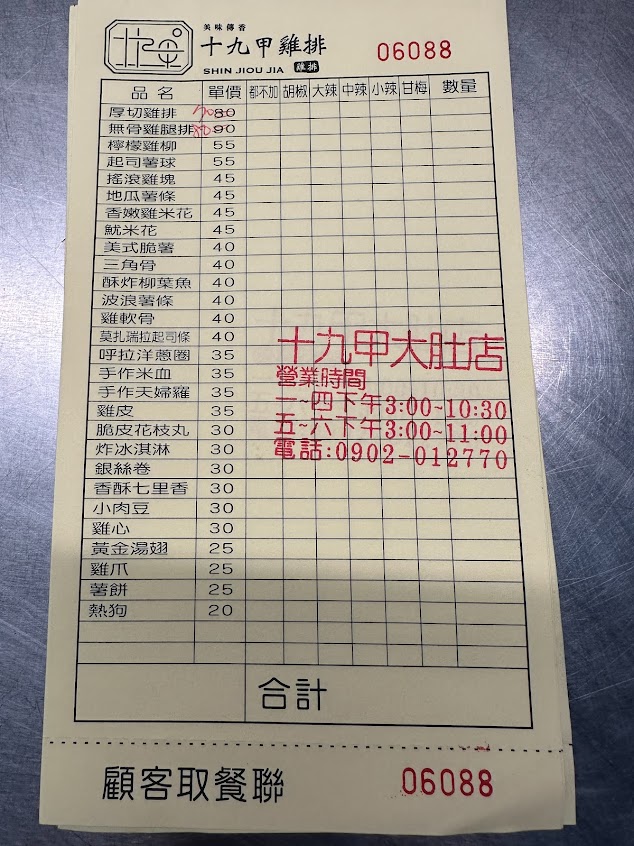 美味傳香
十九甲雞排
SHIN JIOU JIA 雞排
06088
品名 單價 都不加 胡椒 大辣 中辣 小辣 甘梅 數量
厚切雞排 80
無骨雞腿排 90
檸檬雞柳 55
起司薯球 55
搖滾雞塊 45
地瓜薯條 45
香嫩雞米花 45
魷米花 45
美式脆薯 40
三角骨 40
酥炸柳葉魚 40
波浪薯條 40
雞軟骨 40
莫扎瑞拉起司條 40
呼拉洋蔥圈 35
手作米血 35
手作天婦羅 35
雞皮 35
脆皮花枝丸 30
炸冰淇淋 30
銀絲卷 30
香酥七里香 30
小肉豆 30
雞心 30
黃金湯翅 25
雞爪 25
薯餅 25
熱狗 20
十九甲大肚店
營業時間
一~四下午3:00~10:30
五~六下午3:00~11:00
電話:0902-012770
合計
顧客取餐聯 06088